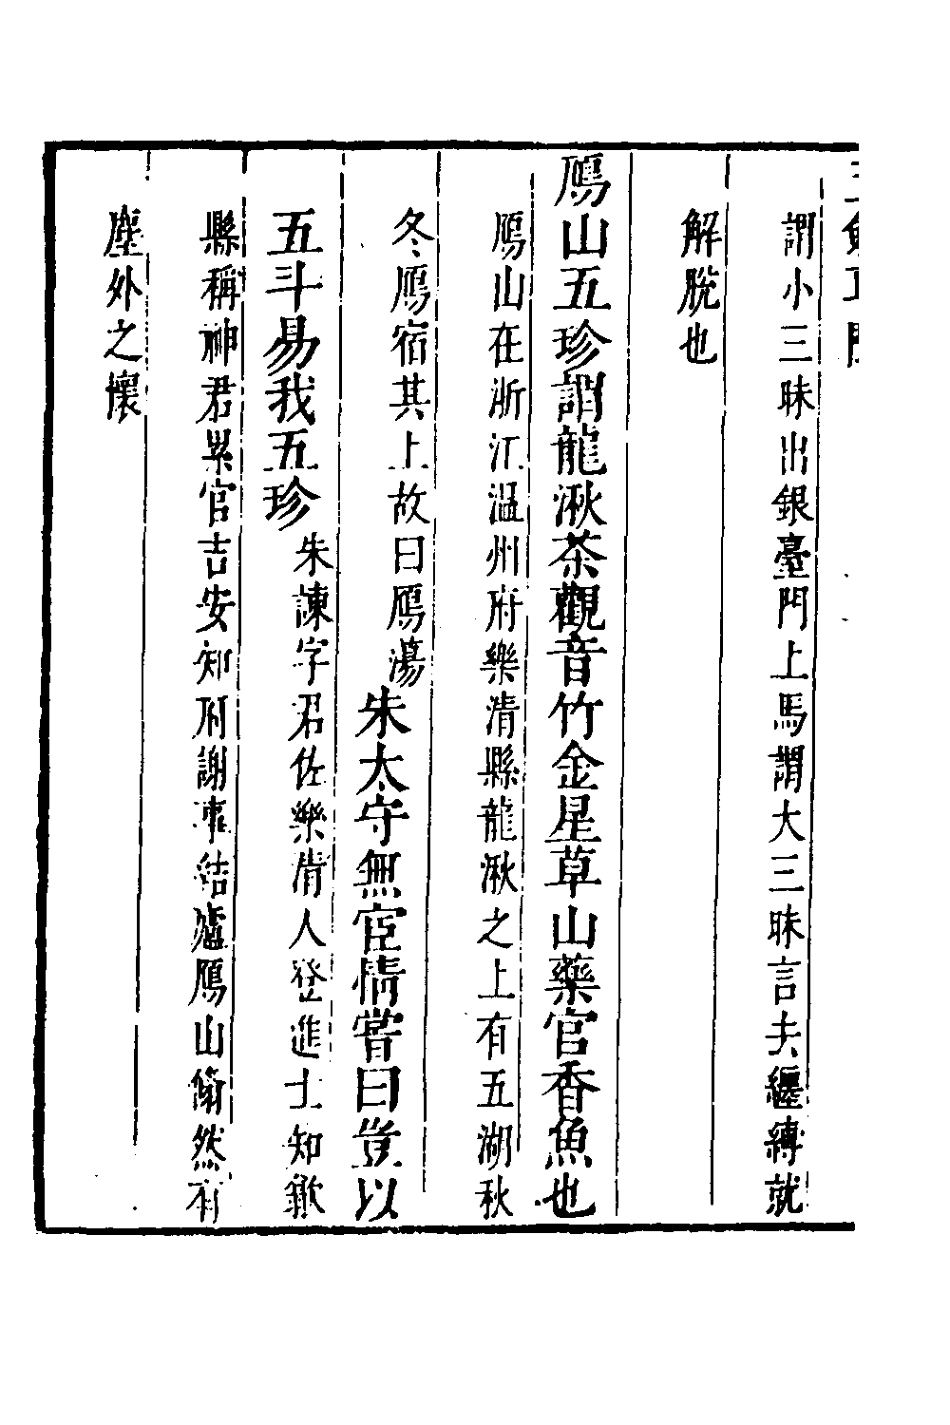 謂小三昧出銀臺門上馬謂大三昧言夫纏縛就
解脫也
鴈山五珍謂龍湫茶觀音竹金星草山藥官香魚也
鴈山在浙江溫州府樂清縣龍湫之上有五湖秋
冬鴈宿其上故曰鴈蕩朱太守無宦情嘗曰豈以
五斗易我五珍朱諫字君佐樂清人登進士知歙
縣稱神君累官吉安知府謝事結廬鴈山翛然有
塵外之懷